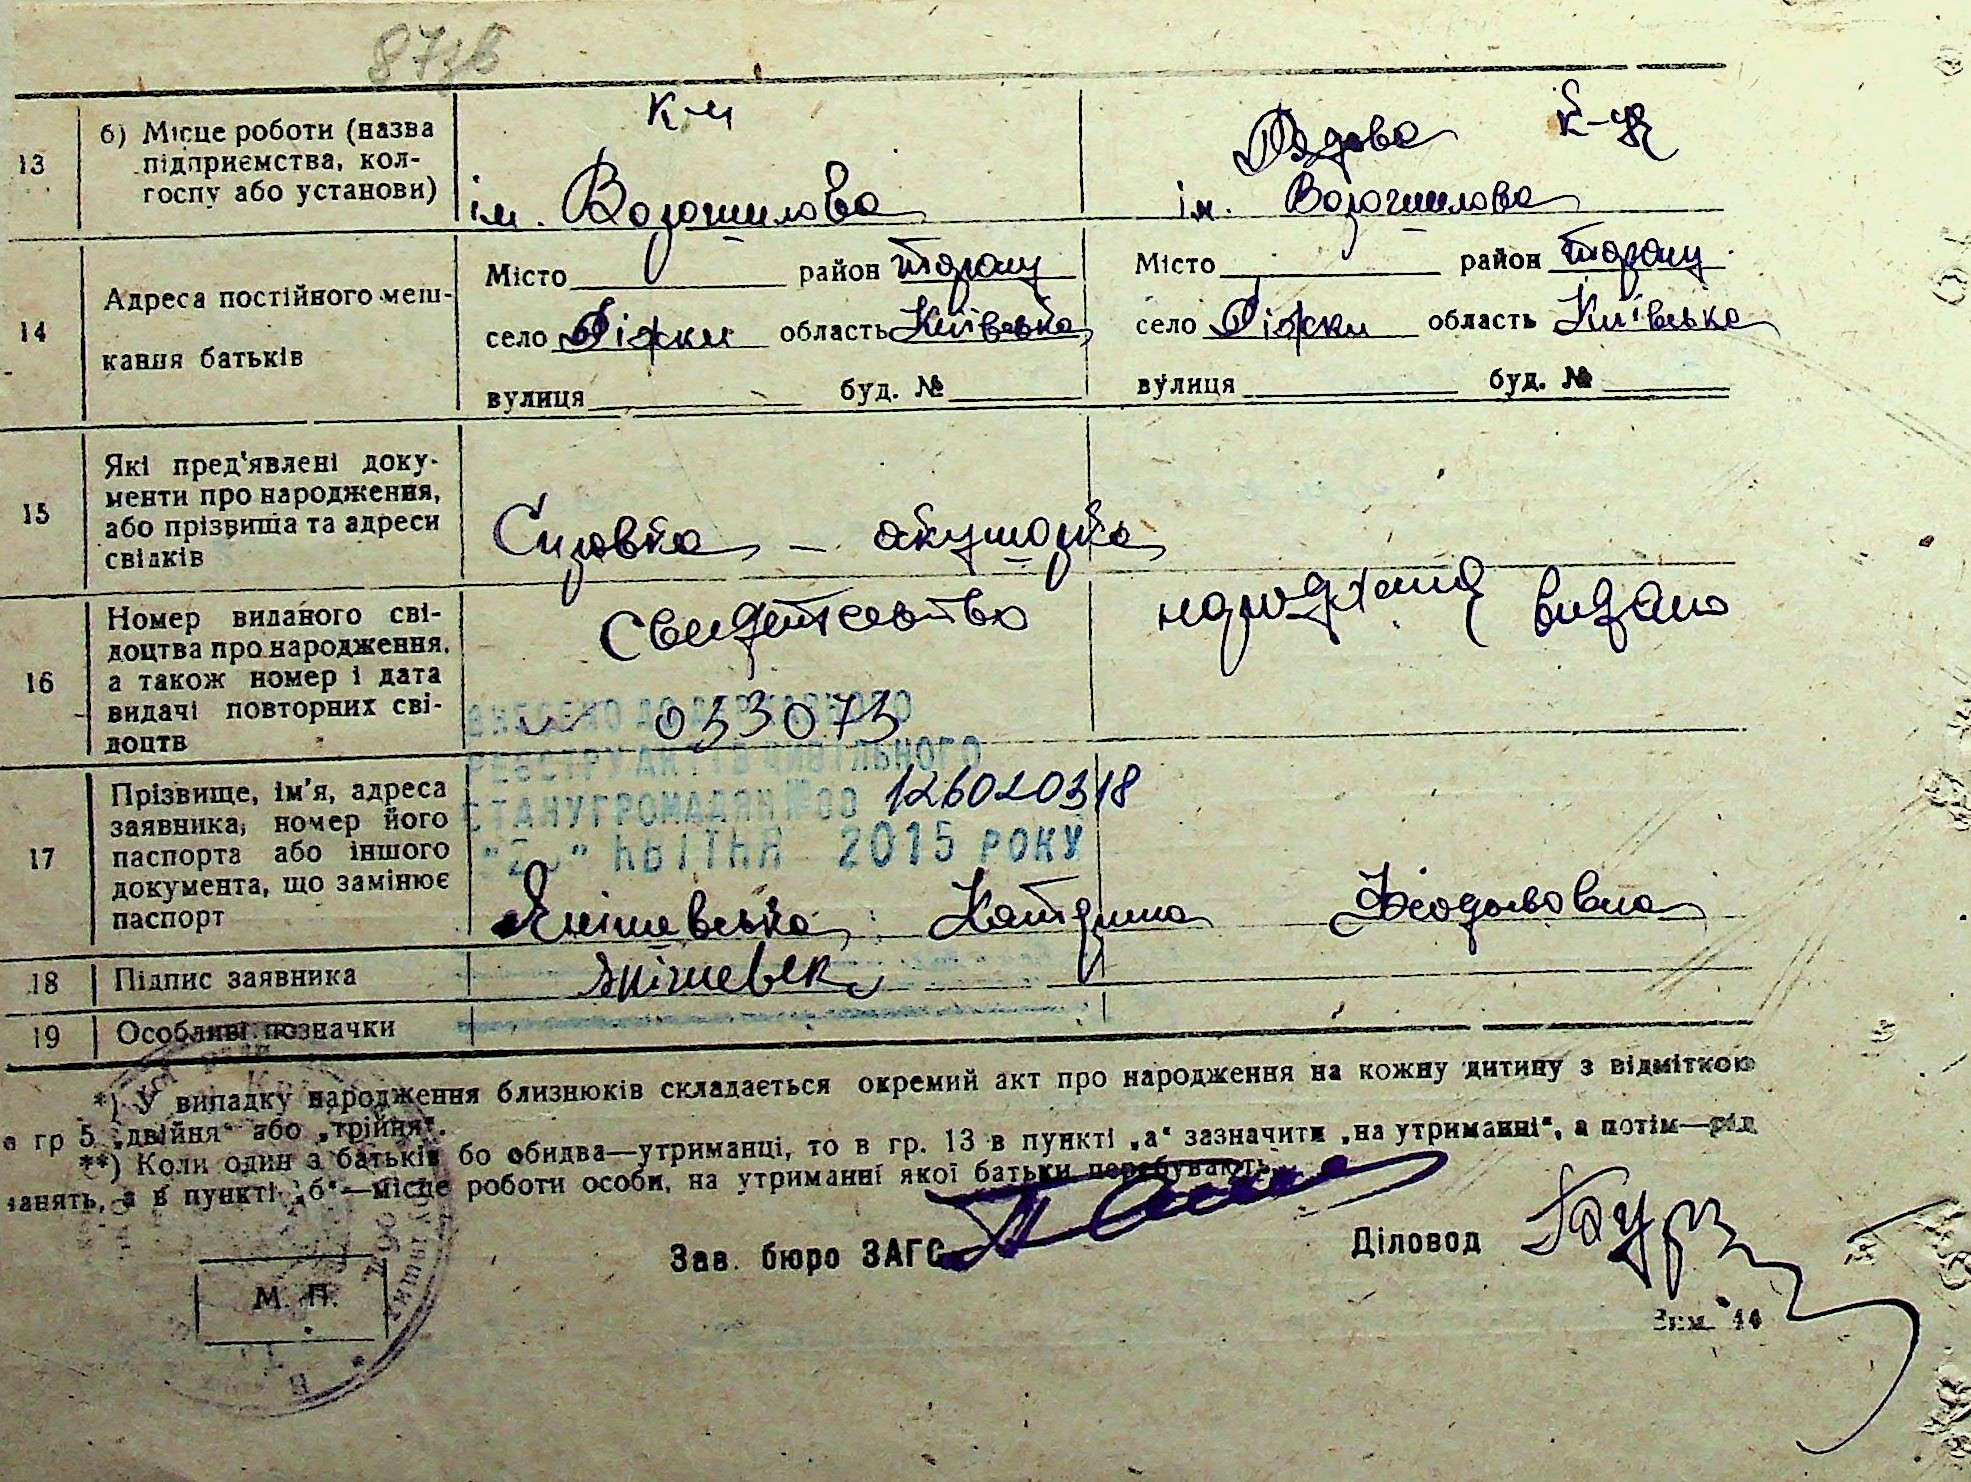 87зв
13 б) Місце роботи (назва підприємства, колгоспу або установи)
к-п
ім. Ворошилова
Рядова к-п
ім. Ворошилова
14 Адреса постійного меш-
кання батьків
Місто район
село область Київська
вулиця буд. №
Місто район
село область Київська
вулиця буд. №
15 Які пред'явлені доку-
менти про народження,
або прізвища та адреси
свідків
акушорка
16 Номер виданого сві-
доцтва про народження,
а також номер і дата
видачі повторних сві-
доцтв
народження видано
033073
ВНЕСЕНО ДО ДЕРЖАВНОГО
РЕЄСТРУ АКТІВ ЦИВІЛЬНОГО
СТАНУ ГРОМАДЯН №00 126020318
КВІТНЯ 2015 РОКУ
17 Прізвище, ім'я, адреса
заявника, номер його
паспорта або іншого
документа, що замінює
паспорт
Янішевська Катерина
18 Підпис заявника
Янішевск
19 Особливі позначки
*) У випадку народження близнюків складається окремий акт про народження на кожну дитину з відміткою
в гр 5 „двійня“ або „трійня“.
**) Коли один з батьків бо обидва—утриманці, то в гр. 13 в пункті „а“ зазначити „на утриманні“, а потім—рід
занять, а в пункті „б“—місце роботи особи, на утриманні якої батьки перебувають.
Зав. бюро ЗАГС
Діловод
М. П.